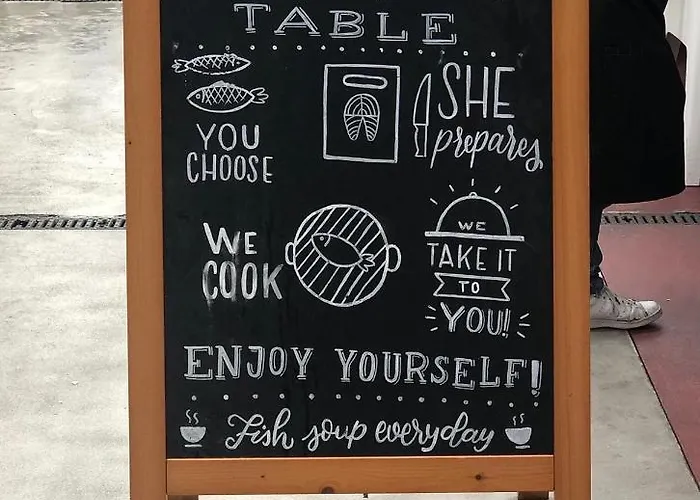 TABLE
YOU
CHOOSE
SHE
prepares
WE
COOK
WE
TAKE IT
TO
YOU!
ENJOY YOURSELF!
Fish soup everyday